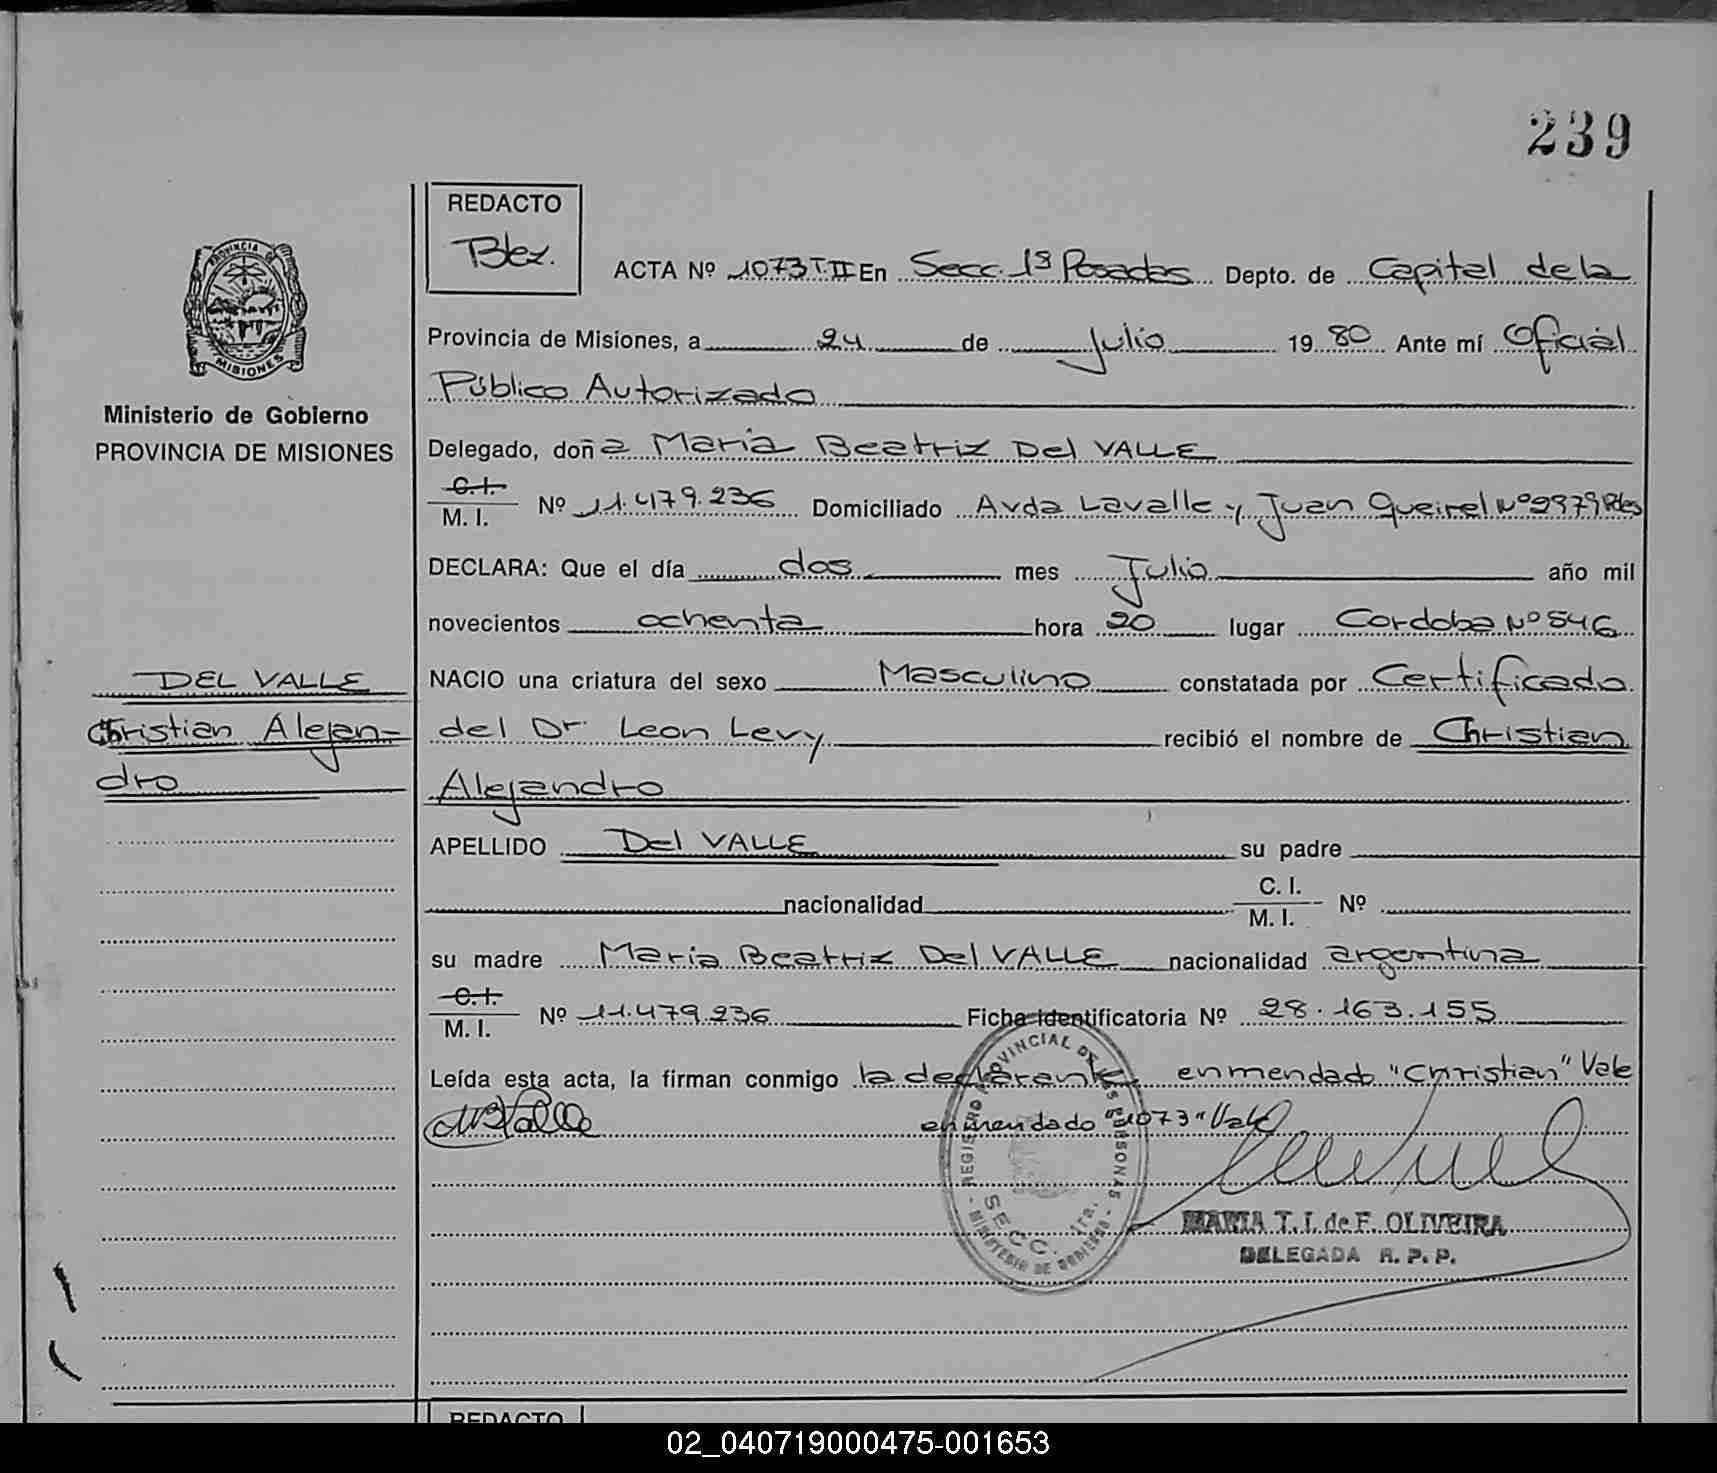 239
REDACTO
Blez.
PROVINCIA DE
MISIONES
ACTA Nº 1073 T.II En Secc. 1ª Posadas Depto. de Capital de la
Provincia de Misiones, a 24 de Julio 1980 Ante mí Oficial
Público Autorizado
Ministerio de Gobierno
PROVINCIA DE MISIONES
Delegado, doña Maria Beatriz Del VALLE
C. I.
M. I. Nº 11.479.236 Domiciliado Avda Lavalle y Juan Queirel Nº 2979 Pdas
DECLARA: Que el día dos mes Julio año mil
novecientos ochenta hora 20 lugar Cordoba Nº 546
DEL VALLE
Christian Alejan-
dro
NACIO una criatura del sexo Masculino constatada por Certificado
del Dr. Leon Levy recibió el nombre de Christian
Alejandro
APELLIDO Del VALLE su padre
nacionalidad C. I.
M. I. Nº
su madre Maria Beatriz Del VALLE nacionalidad argentina
C. I.
M. I. Nº 11.479.236 Ficha identificatoria Nº 28.163.155
Leída esta acta, la firman conmigo la declarante enmendado "Christian" Vale
enmendado "1073" Vale
REGISTRO PROVINCIAL DE LAS PERSONAS
SECC. 1ra.
MINISTERIO DE GOBIERNO
MARIA T. I. de F. OLIVEIRA
DELEGADA R. P. P.
REDACTO
02_040719000475-001653